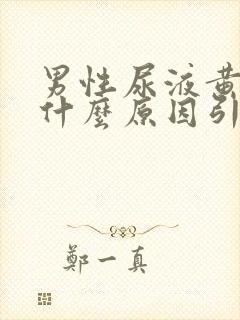 男性尿液黃
什麼原因引
鄭一真